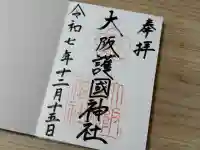 奉拝
大阪護國神社
令和七年十二月十五日